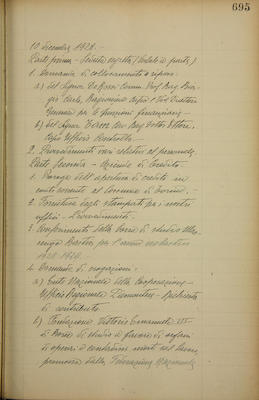 695
10 Dicembre 1928.-
Parte prima - Seduta segreta (Verbale a parte)
1. Domanda di collocamento a riposo:
a) del Signor De Rossi Comm. Rag.
Carlo, Ragioniere Capo
Generale per le funzioni
b) del Signor Cav. Rag. Dott. Ettore,
Capo Ufficio
2. Provvedimenti vari relativi al personale
Parte Seconda - Aziende di Credito
1. Proroga dell'apertura di credito in
conto corrente al Comune di Torino.
2. Fornitura degli stampati pei nostri
uffici - Provvedimenti.
3. Conferimento della borsa di studio
per l'anno scolastico
1928-1929.
4. Domande di erogazioni:
a) Ente Nazionale della Cooperazione
Ufficio Regionale Piemontese - Richiesta
di contributo.
b) Fondazione Vittorio Emanuele III
di Borse di studio a favore di orfani
di operai e contadini morti sul lavoro
promossa dalla Federazione Nazionale